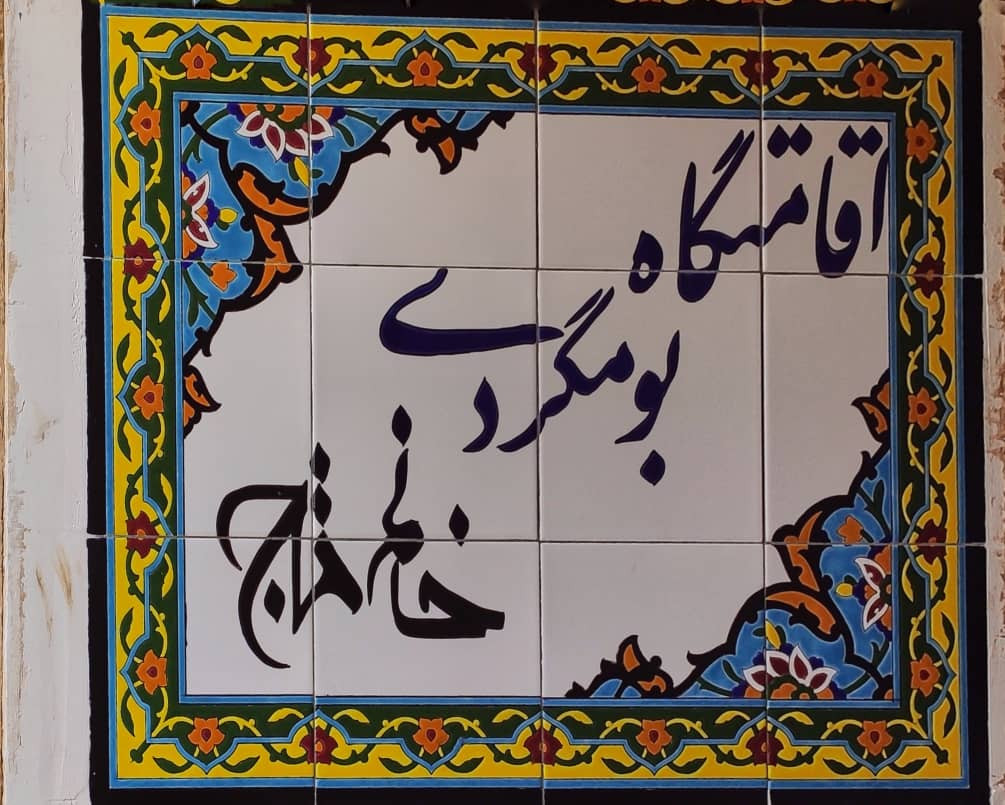 اقامتگاه
بومگردی
خانه تاج